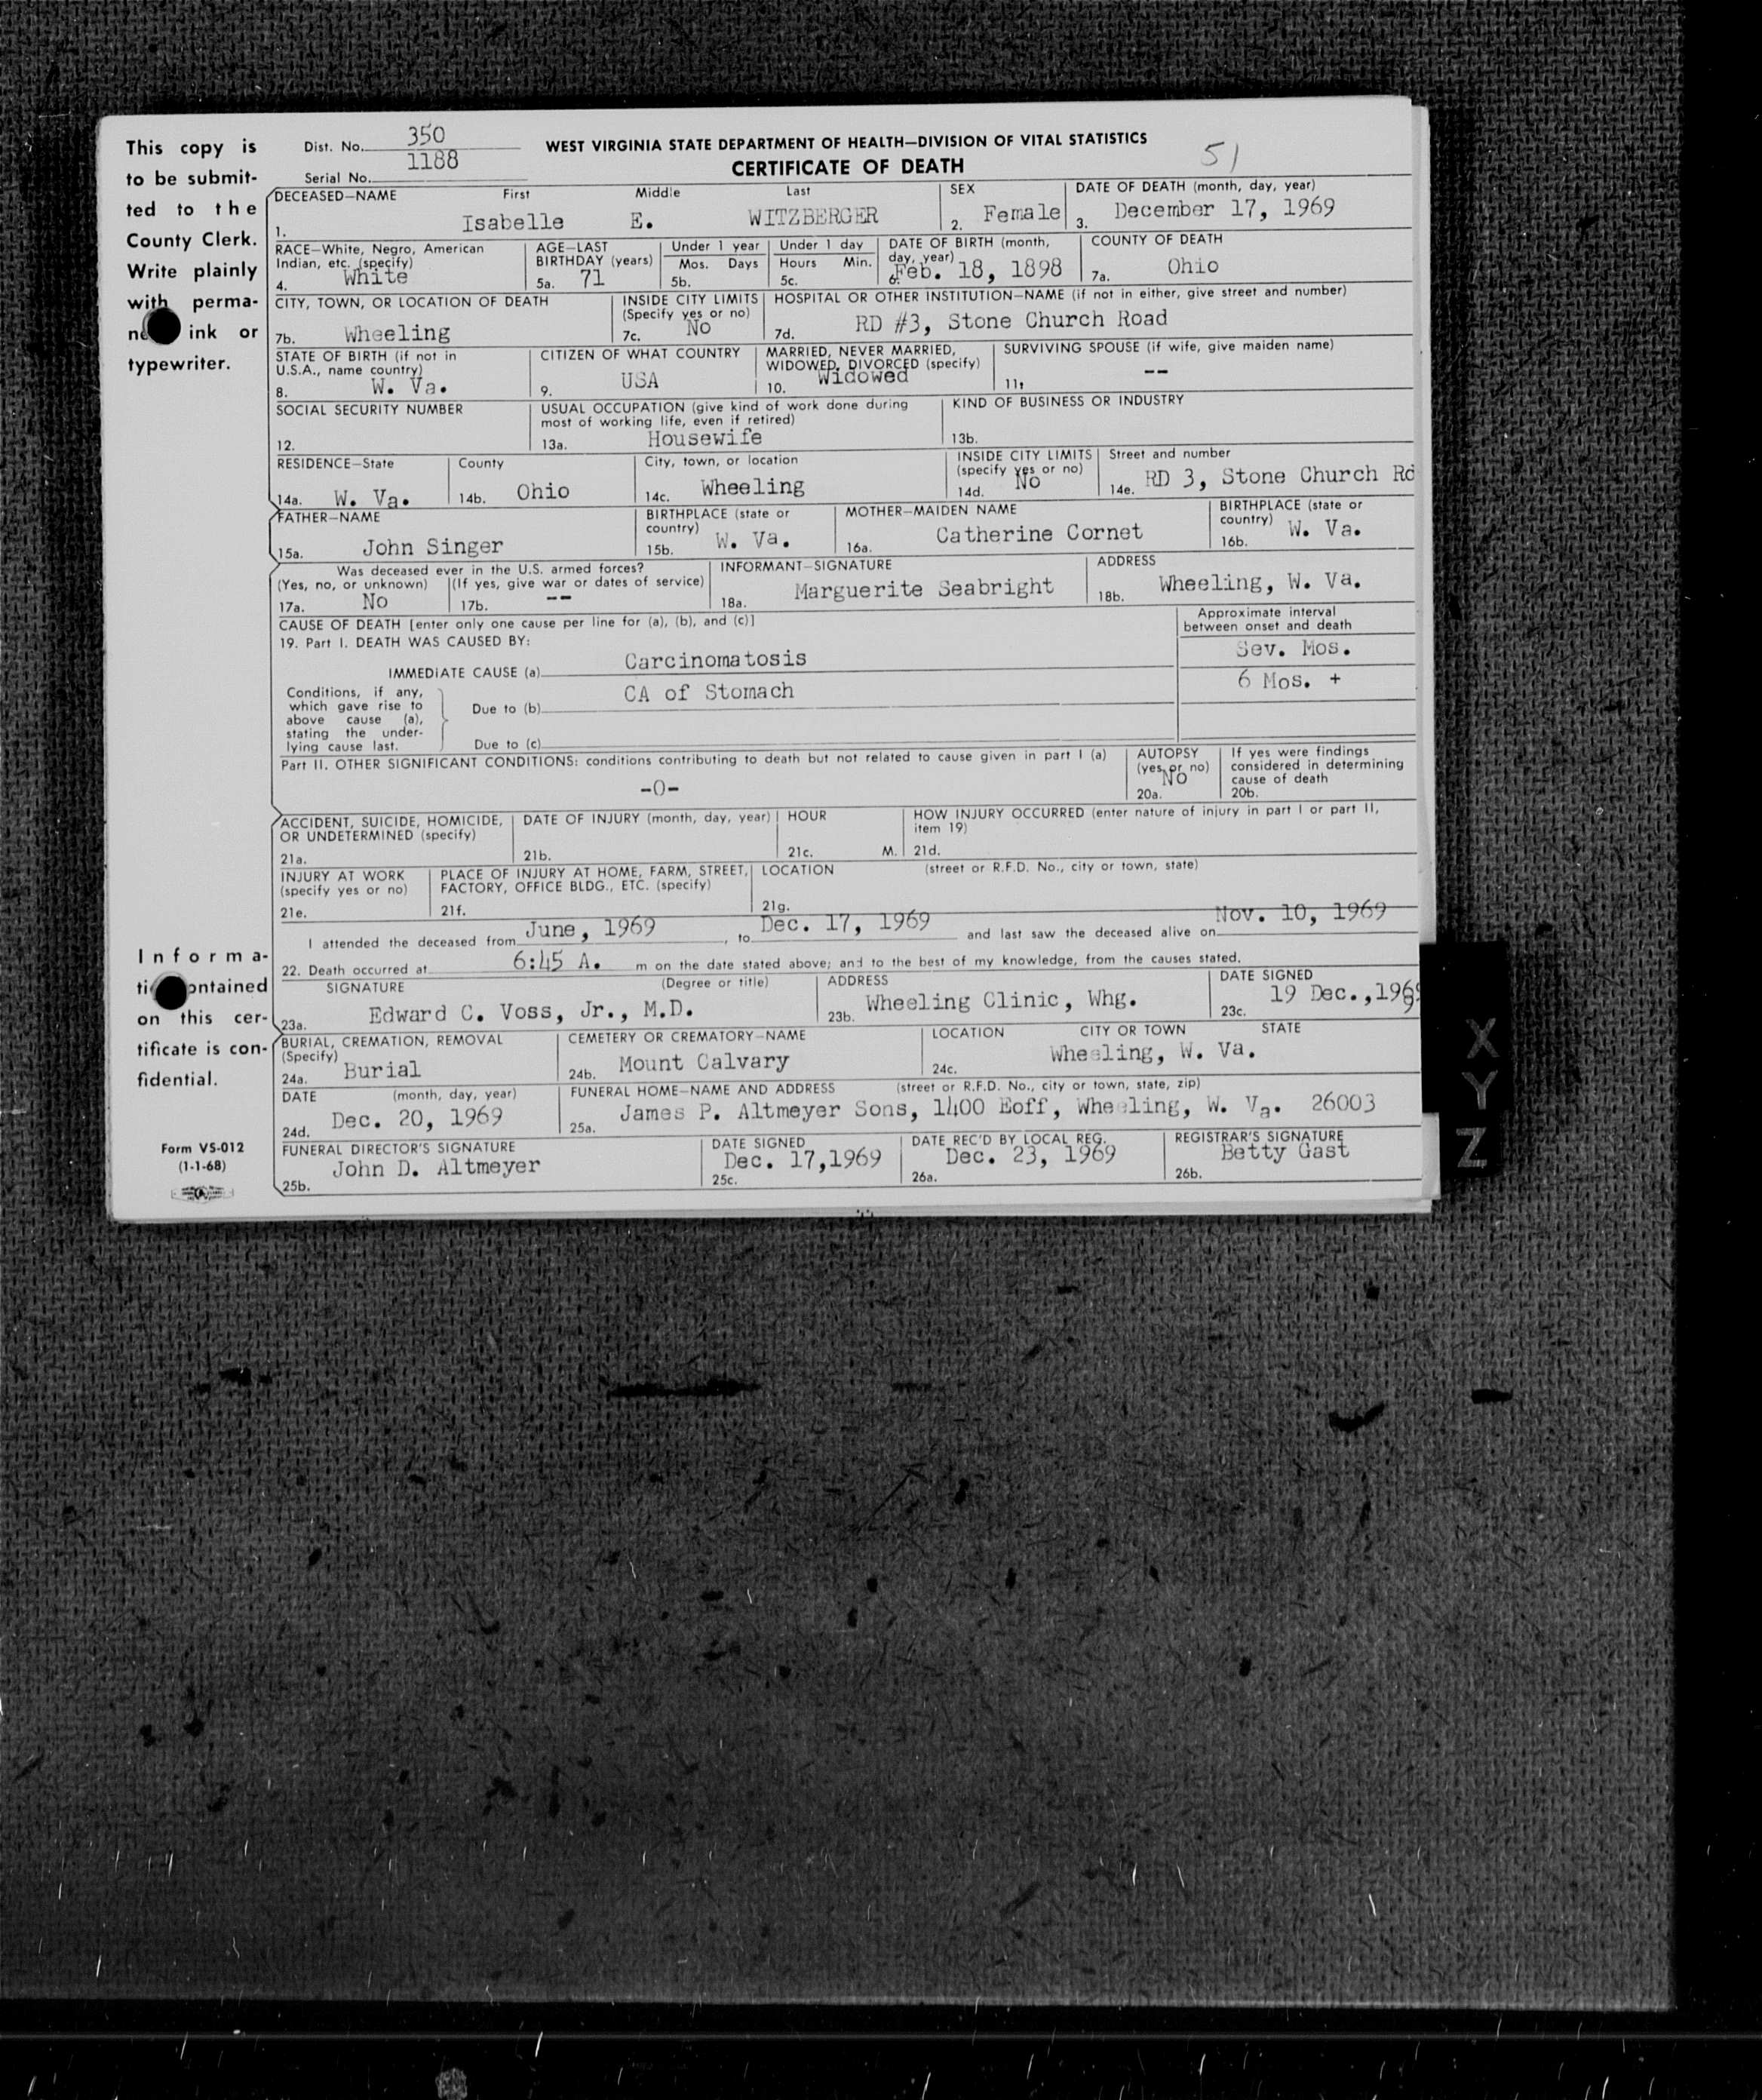 This copy is
to be submit-
ted to the
County Clerk.
Write plainly
with perma-
ink or
typewriter.
Dist. No. 350
Serial No. 1188
WEST VIRGINIA STATE DEPARTMENT OF HEALTH—DIVISION OF VITAL STATISTICS
CERTIFICATE OF DEATH
51
DECEASED—NAME First Middle Last SEX DATE OF DEATH (month, day, year)
1. Isabelle E. WITZBERGER 2. Female 3. December 17, 1969
RACE—White, Negro, American Indian, etc. (specify) AGE—LAST BIRTHDAY (years) Under 1 year Mos. Days Under 1 day Hours Min. DATE OF BIRTH (month, day, year) COUNTY OF DEATH
4. White 5a. 71 5b. 5c. 6. Feb. 18, 1898 7a. Ohio
CITY, TOWN, OR LOCATION OF DEATH INSIDE CITY LIMITS (Specify yes or no) HOSPITAL OR OTHER INSTITUTION—NAME (if not in either, give street and number)
7b. Wheeling 7c. No 7d. RD #3, Stone Church Road
STATE OF BIRTH (if not in U.S.A., name country) CITIZEN OF WHAT COUNTRY MARRIED, NEVER MARRIED, WIDOWED, DIVORCED (specify) SURVIVING SPOUSE (if wife, give maiden name)
8. W. Va. 9. USA 10. Widowed 11. --
SOCIAL SECURITY NUMBER USUAL OCCUPATION (give kind of work done during most of working life, even if retired) KIND OF BUSINESS OR INDUSTRY
12. 13a. Housewife 13b.
RESIDENCE—State County City, town, or location INSIDE CITY LIMITS (specify yes or no) Street and number
14a. W. Va. 14b. Ohio 14c. Wheeling 14d. No 14e. RD 3, Stone Church Rd
FATHER—NAME BIRTHPLACE (state or country) MOTHER—MAIDEN NAME BIRTHPLACE (state or country)
15a. John Singer 15b. W. Va. 16a. Catherine Cornet 16b. W. Va.
Was deceased ever in the U.S. armed forces? INFORMANT—SIGNATURE ADDRESS
(Yes, no, or unknown) (If yes, give war or dates of service)
17a. No 17b. -- 18a. Marguerite Seabright 18b. Wheeling, W. Va.
CAUSE OF DEATH [enter only one cause per line for (a), (b), and (c)] Approximate interval between onset and death
19. Part I. DEATH WAS CAUSED BY:
IMMEDIATE CAUSE (a) Carcinomatosis Sev. Mos.
Conditions, if any,
which gave rise to
above cause (a),
stating the under-
lying cause last.
Due to (b) CA of Stomach 6 Mos. +
Due to (c)
Part II. OTHER SIGNIFICANT CONDITIONS: conditions contributing to death but not related to cause given in part I (a) AUTOPSY (yes or no) If yes were findings considered in determining cause of death
-0- 20a. No 20b.
ACCIDENT, SUICIDE, HOMICIDE, OR UNDETERMINED (specify) DATE OF INJURY (month, day, year) HOUR HOW INJURY OCCURRED (enter nature of injury in part I or part II, item 19)
21a. 21b. 21c. M. 21d.
INJURY AT WORK (specify yes or no) PLACE OF INJURY AT HOME, FARM, STREET, FACTORY, OFFICE BLDG., ETC. (specify) LOCATION (street or R.F.D. No., city or town, state)
21e. 21f. 21g.
I attended the deceased from June, 1969, to Dec. 17, 1969 and last saw the deceased alive on Nov. 10, 1969
22. Death occurred at 6:45 A. m on the date stated above; and to the best of my knowledge, from the causes stated.
SIGNATURE (Degree or title) ADDRESS DATE SIGNED
23a. Edward C. Voss, Jr., M.D. 23b. Wheeling Clinic, Whg. 23c. 19 Dec.,1969
BURIAL, CREMATION, REMOVAL (Specify) CEMETERY OR CREMATORY—NAME LOCATION CITY OR TOWN STATE
24a. Burial 24b. Mount Calvary 24c. Wheeling, W. Va.
DATE (month, day, year) FUNERAL HOME—NAME AND ADDRESS (street or R.F.D. No., city or town, state, zip)
24d. Dec. 20, 1969 25a. James P. Altmeyer Sons, 1400 Eoff, Wheeling, W. Va. 26003
FUNERAL DIRECTOR'S SIGNATURE DATE SIGNED DATE REC'D BY LOCAL REG. REGISTRAR'S SIGNATURE
25b. John D. Altmeyer 25c. Dec. 17,1969 26a. Dec. 23, 1969 26b. Betty Gast
Informa-
ontained
on this cer-
tificate is con-
fidential.
Form VS-012
(1-1-68)
X
Y
Z